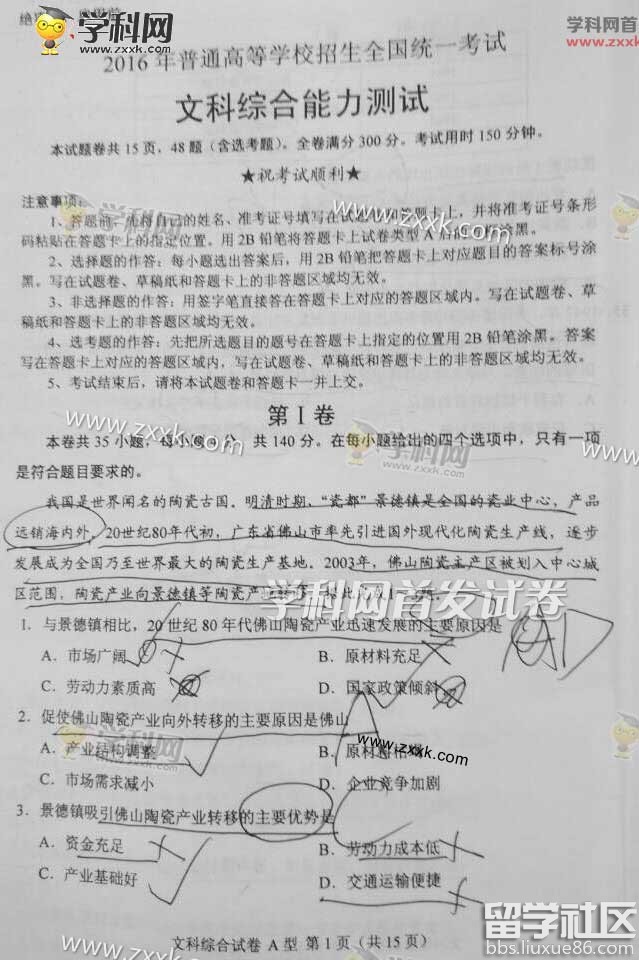 绝
学科网
www.zxxk.com
学科网
www.zxxk.com
2016年普通高等学校招生全国统一考试
文科综合能力测试
本试题卷共15页，48题（含选考题）。全卷满分300分。考试用时150分钟。
★祝考试顺利★
注意事项：
学科网
www.zxxk.com
1、答题前，先将自己的姓名、准考证号填写在试题卷和答题卡上，并将准考证号条形
码粘贴在答题卡上的指定位置。用2B铅笔将答题卡上试卷类型A后的方框涂黑。
2、选择题的作答：每小题选出答案后，用2B铅笔把答题卡上对应题目的答案标号涂
黑。写在试题卷、草稿纸和答题卡上的非答题区域均无效。
3、非选择题的作答：用签字笔直接答在答题卡上对应的答题区域内。写在试题卷、草
稿纸和答题卡上的非答题区域均无效。
4、选考题的作答：先把所选题目的题号在答题卡上指定的位置用2B铅笔涂黑。答案
写在答题卡上对应的答题区域内，写在试题卷、草稿纸和答题卡上的非答题区域均无效。
5、考试结束后，请将本试题卷和答题卡一并上交。
www.zxxk.com
第Ⅰ卷
学科网
zxxk.com
本卷共35小题，每小题 分，共140分。在每小题给出的四个选项中，只有一项
是符合题目要求的。
我国是世界闻名的陶瓷古国。明清时期，“瓷都”景德镇是全国的瓷业中心，产品
远销海内外。20世纪80年代初，广东省佛山市率先引进国外现代化陶瓷生产线，逐步
发展成为全国乃至世界最大的陶瓷生产基地。2003年，佛山陶瓷主产区被划入中心城
区范围，陶瓷产业向景德镇等陶瓷产地转移。据此完成1～3题。
学科网首发试卷
1．与景德镇相比，20世纪80年代佛山陶瓷产业迅速发展的主要原因是
A．市场广阔 B．原材料充足
C．劳动力素质高 D．国家政策倾斜
2．促使佛山陶瓷产业向外转移的主要原因是佛山 A
学科网
www.zxxk.com
A．产业结构调整 B．原材料枯竭
www.zxxk.com
C．市场需求减小 D．企业竞争加剧
3．景德镇吸引佛山陶瓷产业转移的主要优势是 C
A．资金充足 B．劳动力成本低
C．产业基础好 D．交通运输便捷
文科综合试卷 A型 第1页（共15页）
www.zxxk.com
学科网
www.zxxk.com
留学社区
bbs.liuxue86.com